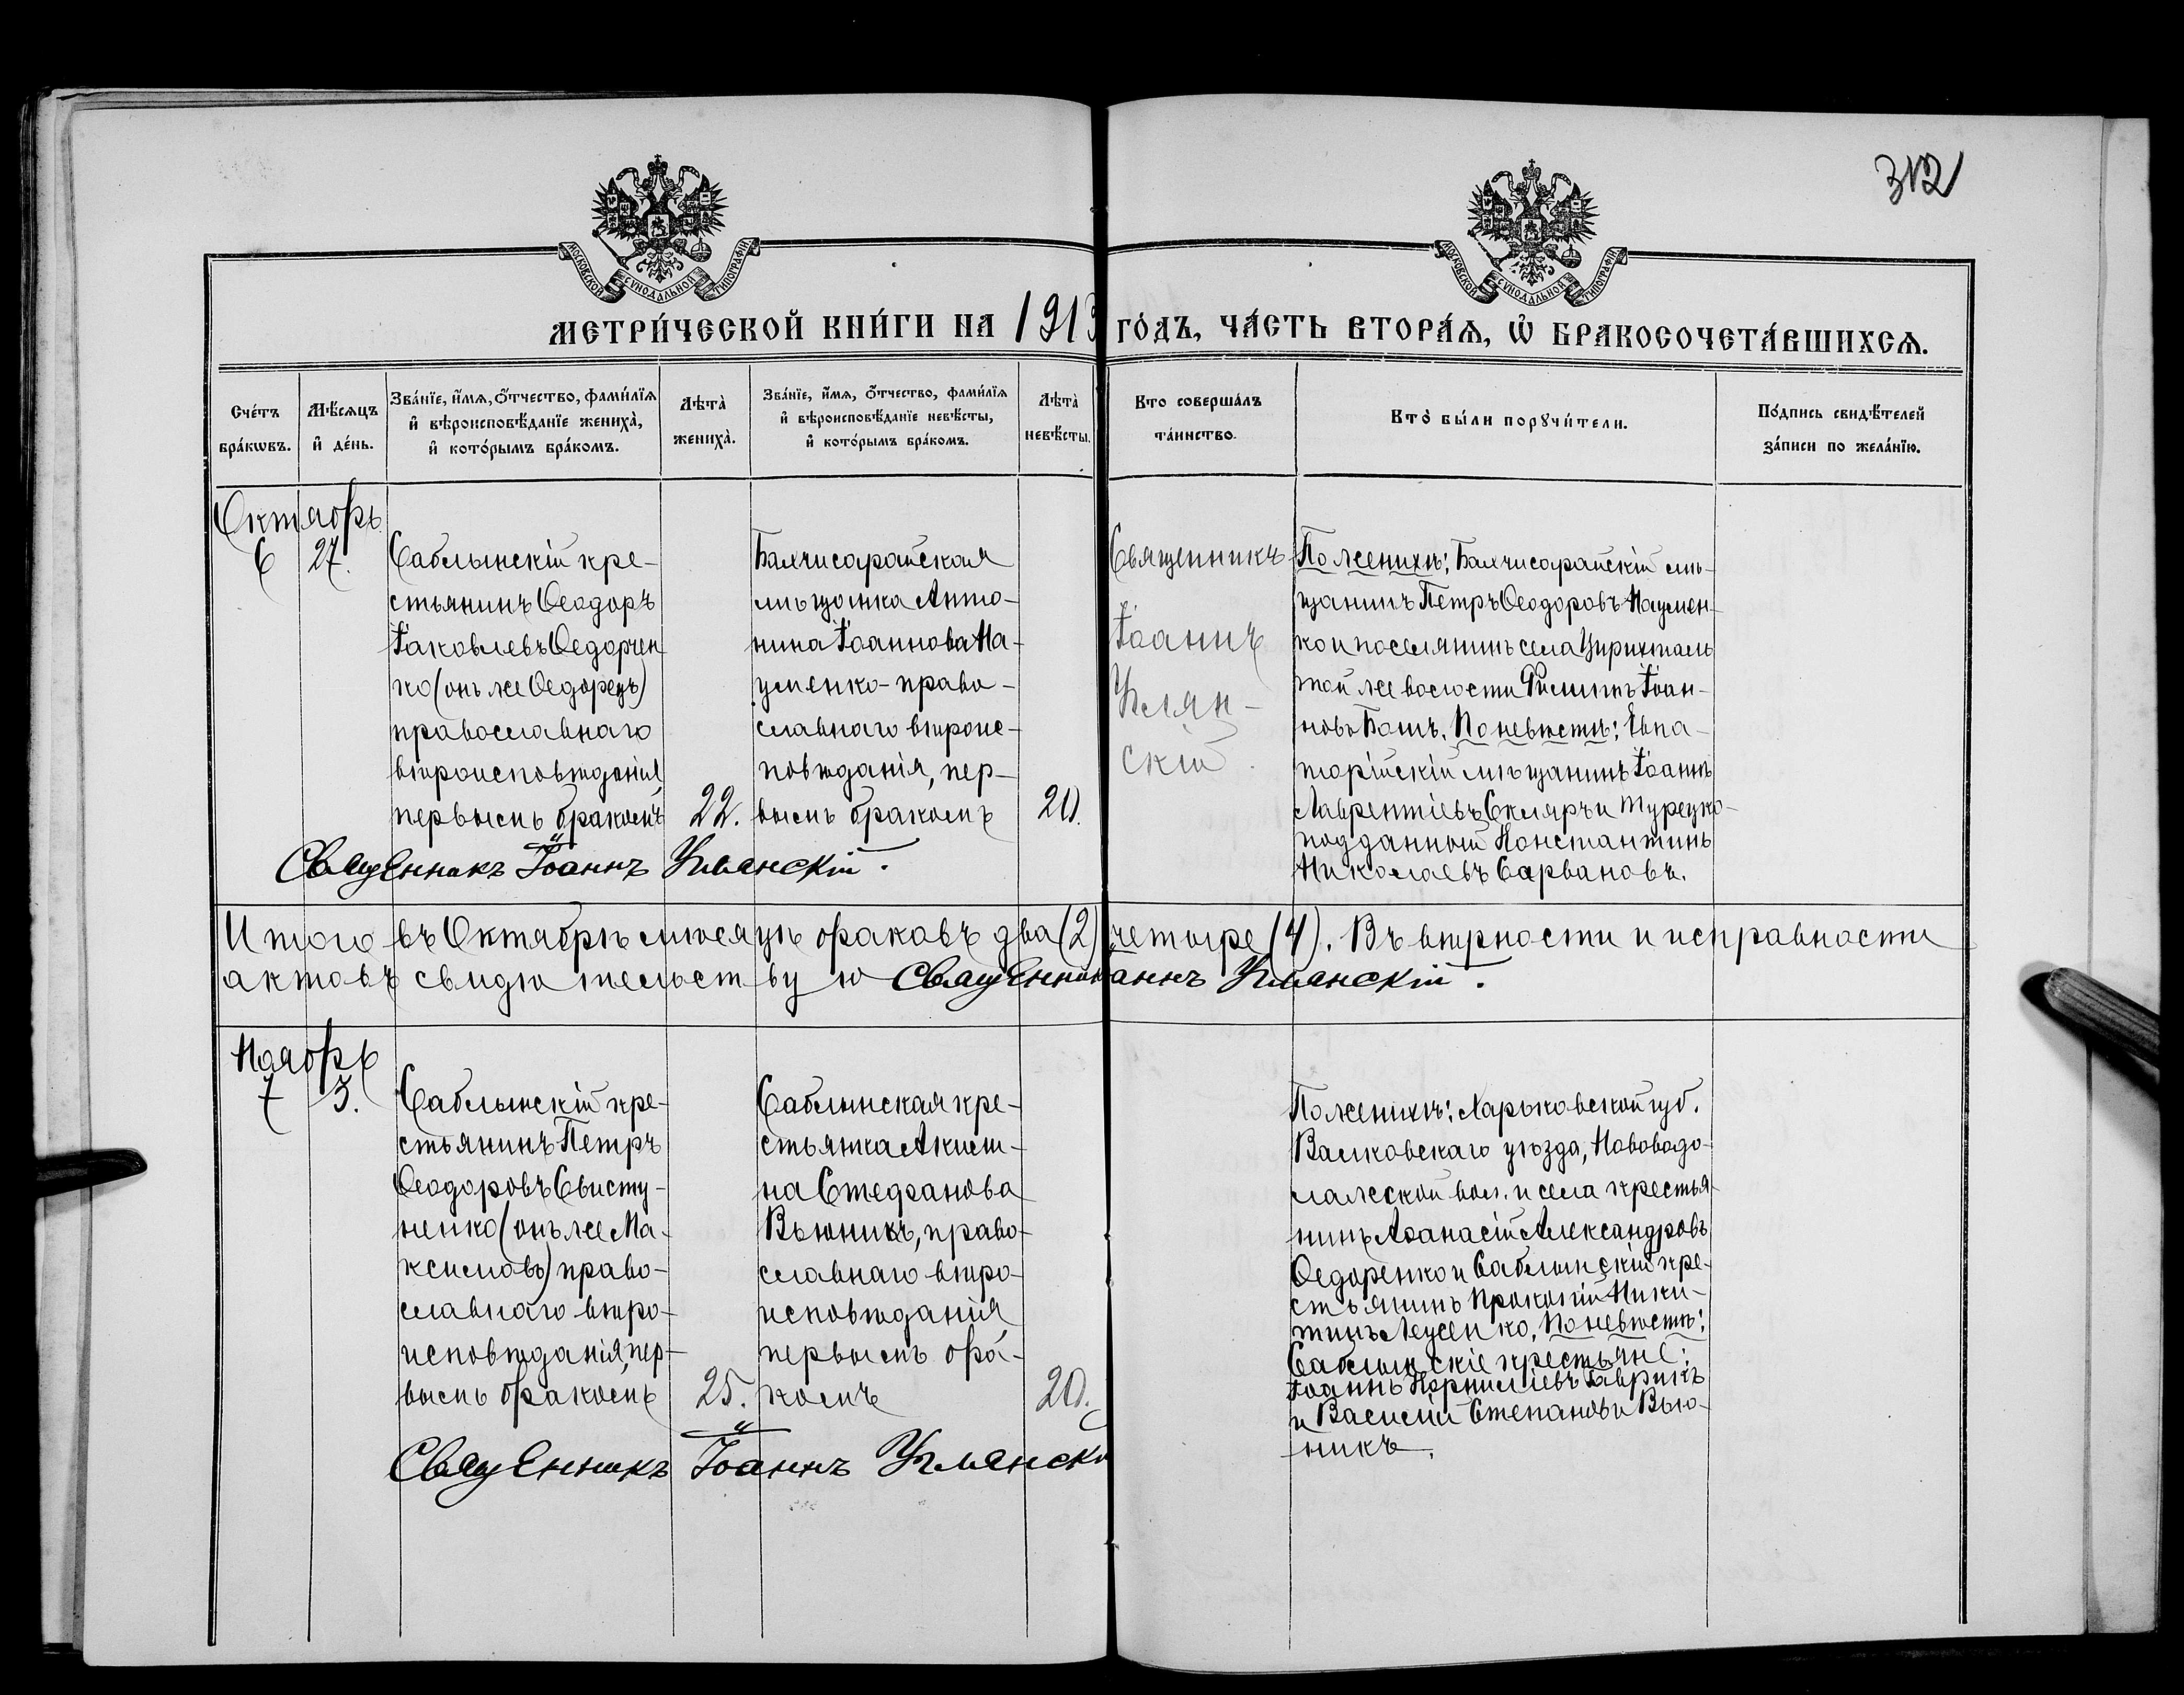 312
МОСКОВСКОЙ СѴНОДАЛЬНОЙ ТИПОГРАФІИ
МОСКОВСКОЙ СѴНОДАЛЬНОЙ ТИПОГРАФІИ
МЕТРИ́ЧЕСКОЙ КНИ́ГИ НА 1913 ГО́ДЪ, ЧА́СТЬ ВТОРА́Ѧ, Ѽ БРАКОСОЧЕТА́ВШИХСѦ.
Сче́тъ
бра́кѡвъ.
Мѣ́сѧцъ
и҆ де́нь.
Зва́нїе, и҆́мѧ, ѻ҆́тчество, фами́лїѧ
и҆ вѣроисповѣ́данїе жениха̀,
и҆ кото́рымъ бра́комъ.
Лѣта̀
жениха̀.
Зва́нїе, и҆́мѧ, ѻ҆́тчество, фами́лїѧ
и҆ вѣроисповѣ́данїе невѣ́сты,
и҆ кото́рымъ бра́комъ.
Лѣта̀
невѣ́сты.
Кто соверша́лъ
та́инство.
Кто̀ бы́ли порꙋчи́тели.
По́дпись свидѣ́телей
за́писи по жела́нїю.
Октябрь
6
27.
Саблынскій кре-
стьянинъ Ѳеодоръ
Іаковлевъ Ѳедорчен
ко (онъ же Ѳедорецъ)
православнаго
вѣроисповѣданія
первымъ бракомъ
22.
Бахчисарайская
мѣщанка Анто-
нина Іоаннова На-
уменко-право-
славнаго вѣроис-
повѣданія, пер-
вымъ бракомъ
20.
Священникъ
Іоаннъ
Углян-
скій.
По женихѣ: Бахчисарайскій мѣ-
щанинъ Петръ Ѳеодоровъ Наумен-
ко и поселянинъ села Цюрихталь
той же волости Филиппъ Іоан-
новъ Башъ. По невѣстѣ: Евпа-
торійскій мѣщанинъ Іоаннъ
Лаврентіевъ Скляръ и турецко-
подданный Константинъ
Николаевъ Сарвановъ.
Священникъ Іоаннъ Углянскій.
Итого въ Октябрѣ мѣсяцѣ браковъ два (2) четыре (4). Въ вѣрности и исправности
актовъ свидѣтельствую Священникъ Іоаннъ Углянскій.
Ноябрь
7
3.
Саблынскій кре-
стьянинъ Петръ
Ѳеодоровъ Свисту-
ненко (онъ же Ма-
ксимовъ) право-
славнаго вѣро-
исповѣданія, пер-
вымъ бракомъ
25.
Саблынская кре-
стьянка Акили-
на Стефанова
Вьюникъ, право-
славнаго вѣро-
исповѣданія
первымъ бра-
комъ
20.
По женихѣ: Харьковской губ.
Валковскаго уѣзда, Нововодо-
лажской вол. и села крестья-
нинъ Аѳанасій Александровъ
Ѳедоренко и Саблынскій кре-
стьянинъ Прокопій Ники-
тинъ Леусенко, По невѣстѣ:
Саблынскіе крестьяне:
Іоаннъ Корниліевъ Гаврикъ
и Василій Степановъ Вью-
никъ.
Священникъ Іоаннъ Углянскі